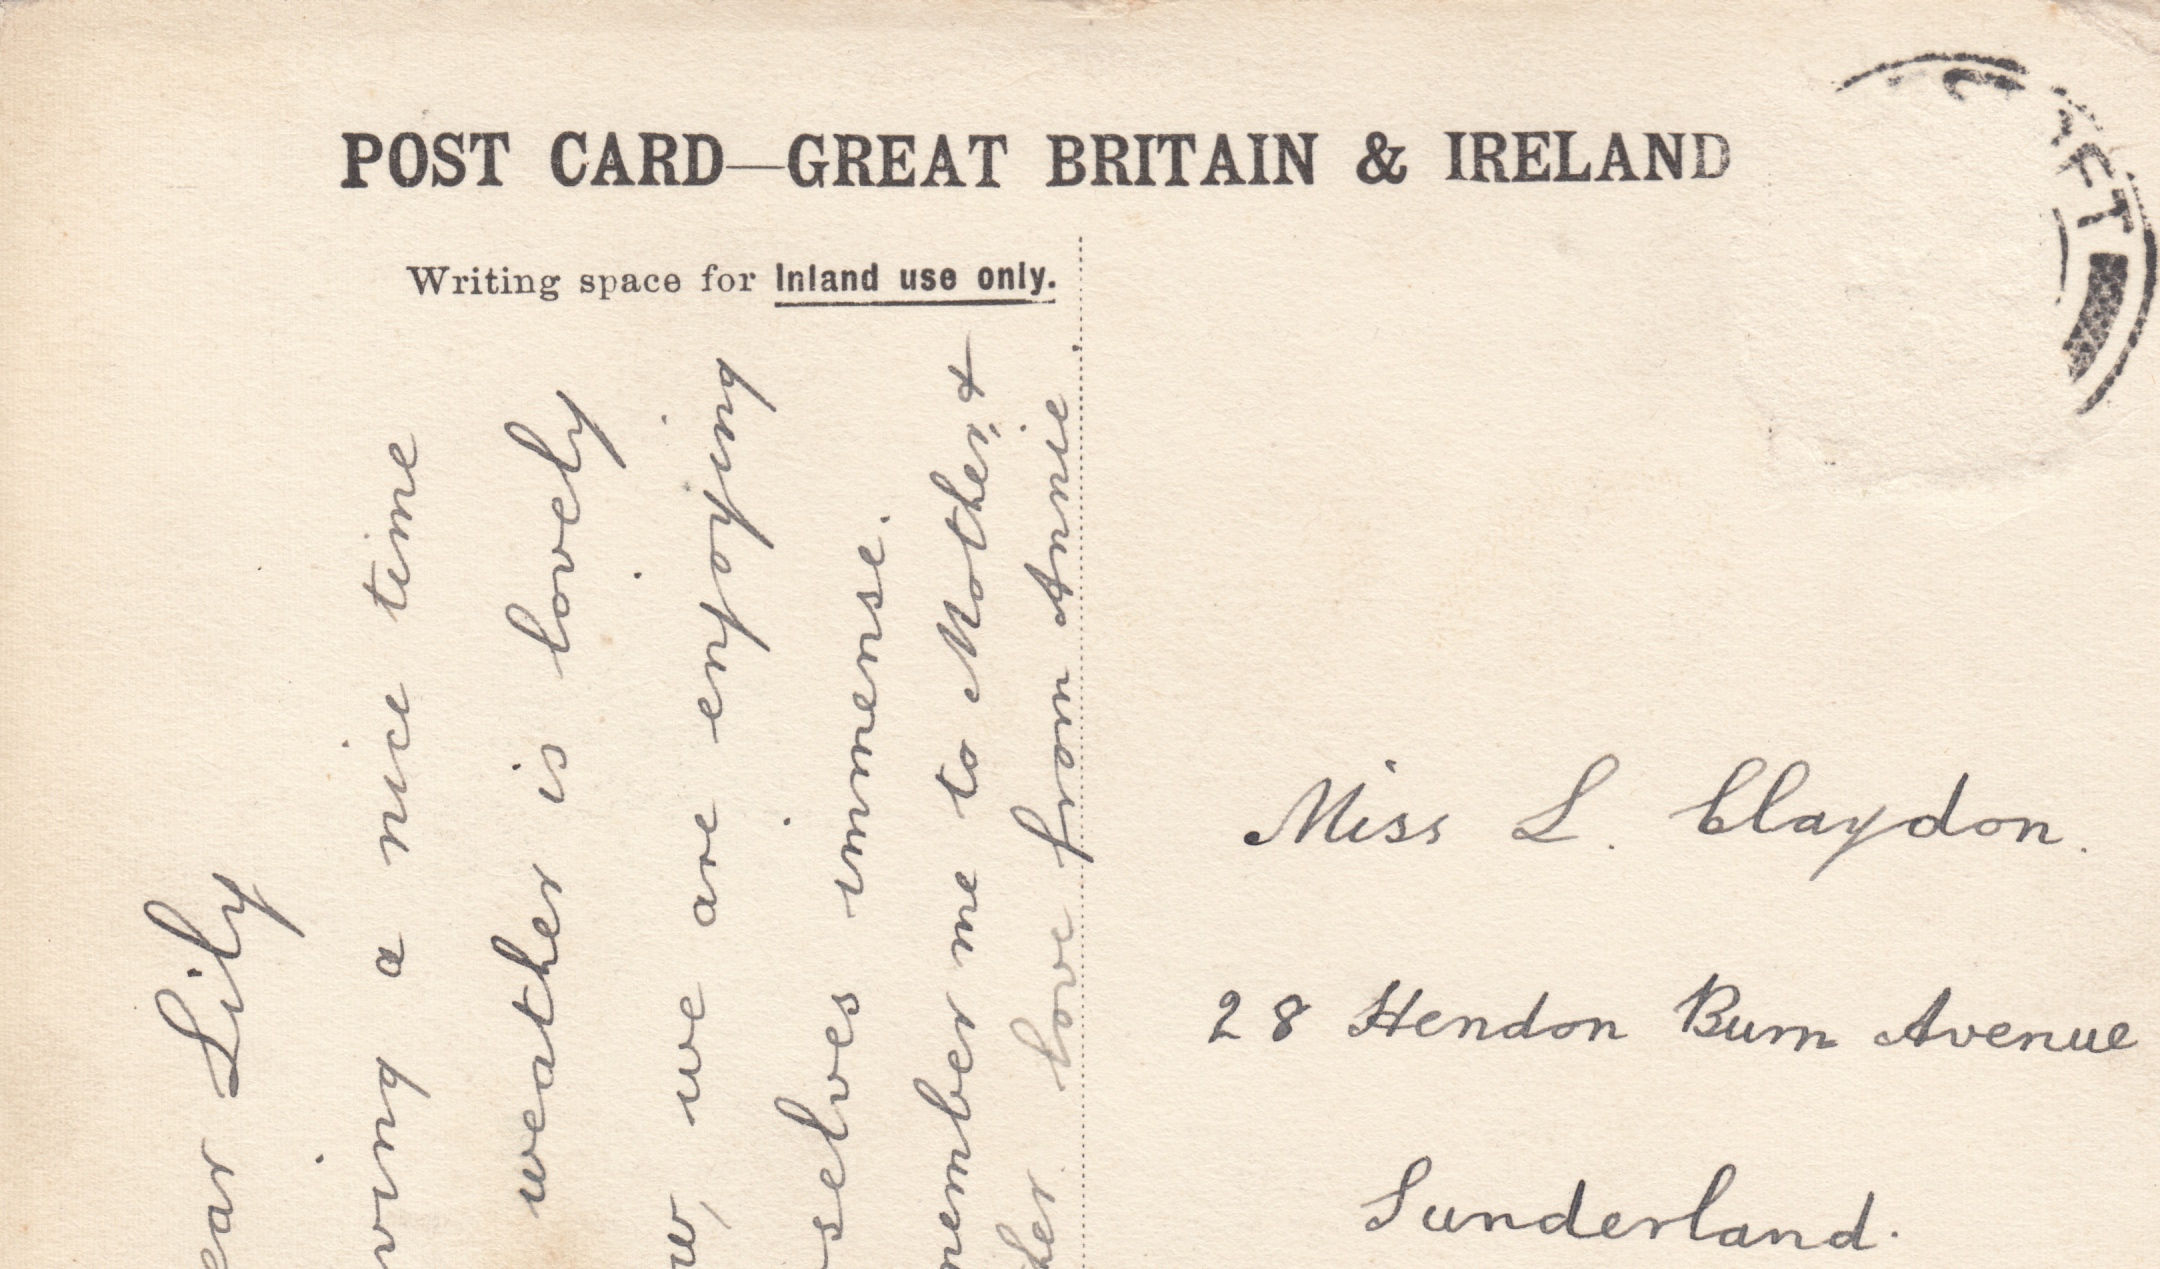 POST CARD—GREAT BRITAIN & IRELAND
Writing space for Inland use only.
ear Lily
ving a nice time
weather is lovely
w, we are enjoying
selves immense.
member me to Mother &
ther love from Annie
Miss L. Claydon.
28 Hendon Burn Avenue
Sunderland.